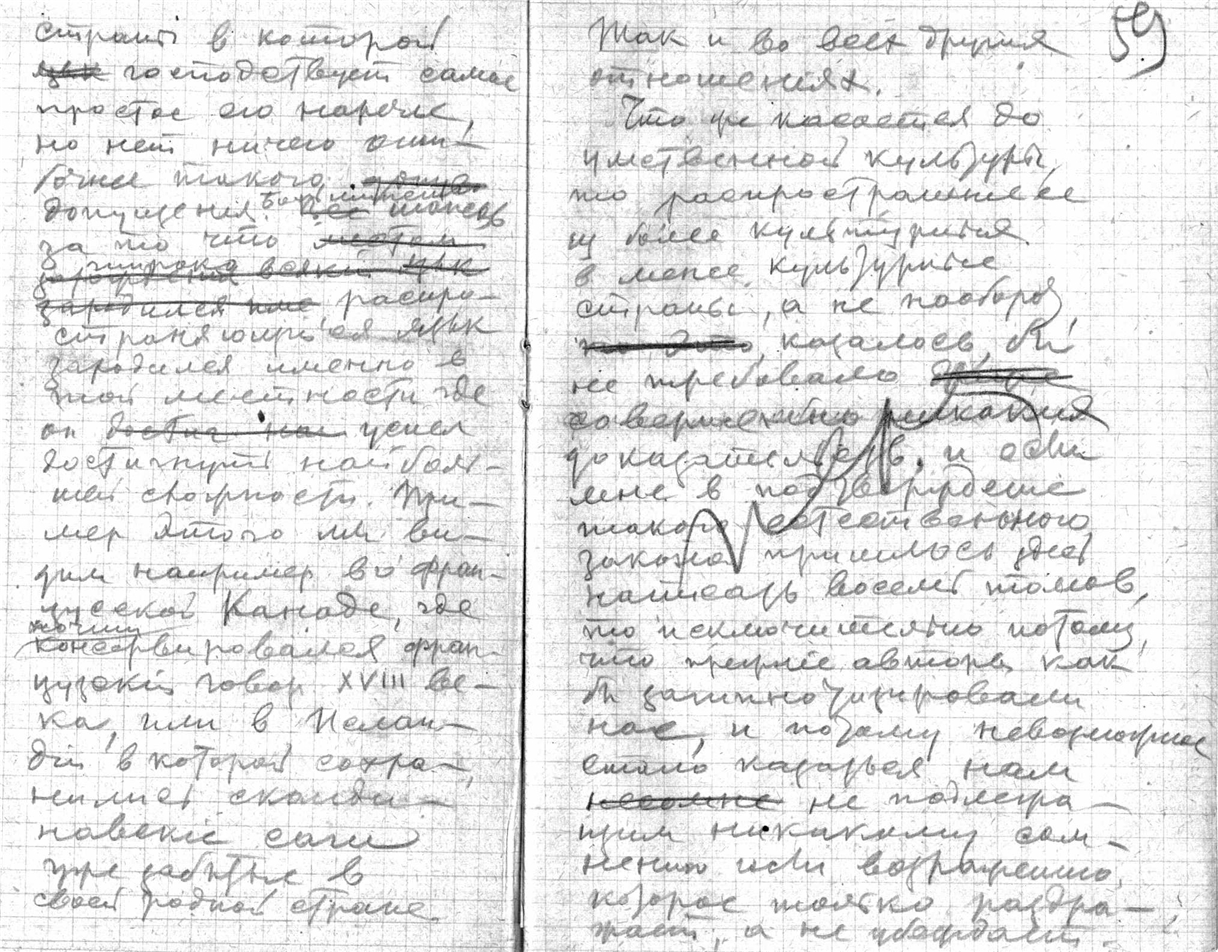 страны в которой
господствует самое
простое его наречіе,
но нет ничего оши-
бочнее такого
допущения.
за то что
широко всякій язык
зародился распро-
страняющійся язык
зародился именно в
той местности где
он успел
достигнуть наиболь-
шей сложности. При-
мер этого мы ви-
дим например во фран-
цузской Канаде, где
почти
консервировался фран-
цузскій говор XVIII ве-
ка, или вИслан-
діи в которой сохра-
нились сканди-
навскіе саги
уже забытые в
своей родной стране.
59
Так и во всех других
отношениях.
Что же касается до
умственной культуры
то распространение
ея более культурных
в менее культурные
страны, а не наоборот,
казалось бы
не требовало
совершенно никаких
доказательств, и если
мне в подтверждение
такого естественного
закона пришлось здесь
написать восемь томов,
то исключительно потому,
что прежніе авторы как
бы загипнотизировали
нас, и потому невозможное
стало казаться нам
несомне не подлежа-
щим никакому сом-
нению или возражению,
которое только раздра-
жает, а не убеждает.